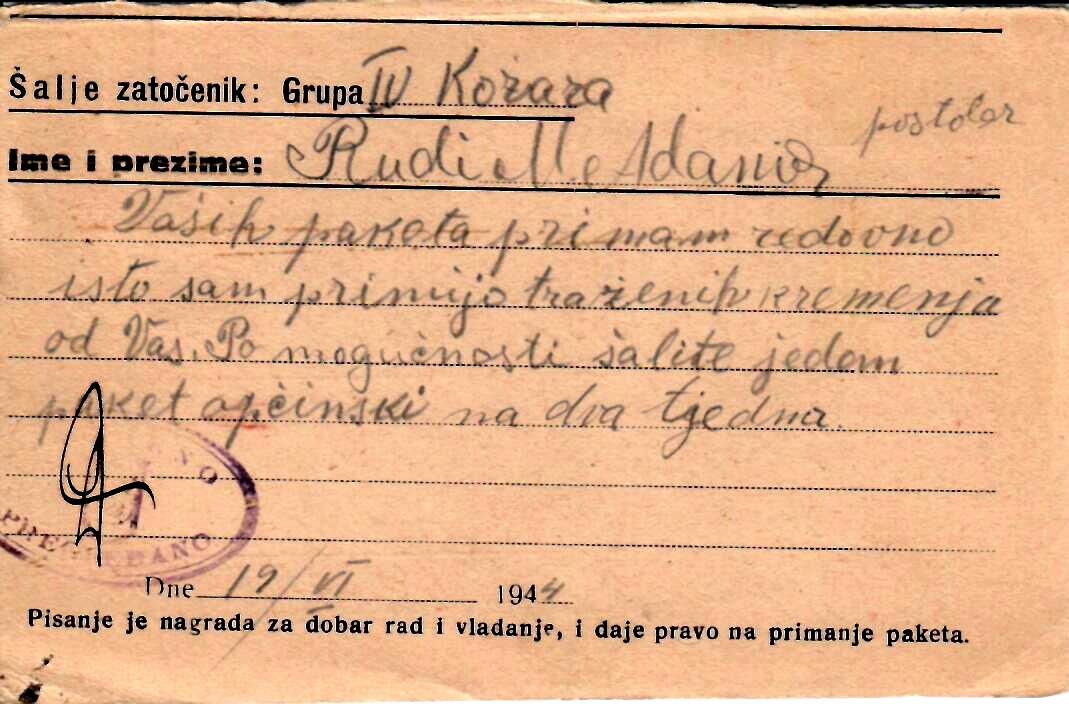 Šalje zatočenik: Grupa IV Kožara
postolar
Ime i prezime: Rudi M. Adanič
Vaših paketa primam redovno
isto sam primijo traženih kremenja
od Vas. Po mogućnosti šalite jedam
paket općinski na dva tjedna.
PREGLEDANO
Dne 19/VI 1944
Pisanje je nagrada za dobar rad i vladanje, i daje pravo na primanje paketa.